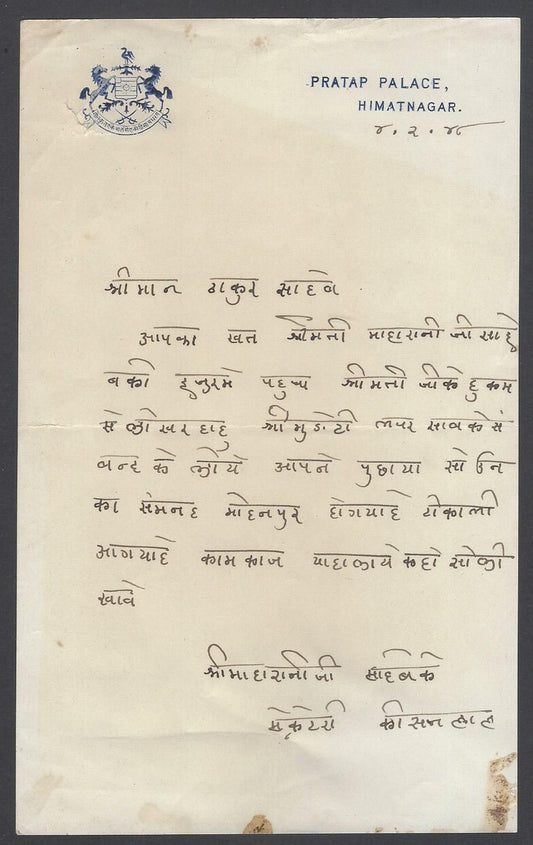 PRATAP PALACE,
HIMATNAGAR.
४.२.४८
श्रीमान ठाकुर साहेब
आपका खत श्रीमती माहारानी जी साहे
बकी हुजुरमे पहुचा श्रीमती जीके हुकम
से लीखरहाहु श्री मुडेटी कें सं
बन्ध के लीये आपने पुछाया सो उन
का संमनद मोहनपुर होगयाहे टीकाली
आगयाहे काम काज याहालायेक हो सो ली
खावे
श्री माहारानी जी साहेबके
सेक्रेटेरी कीसनलाल